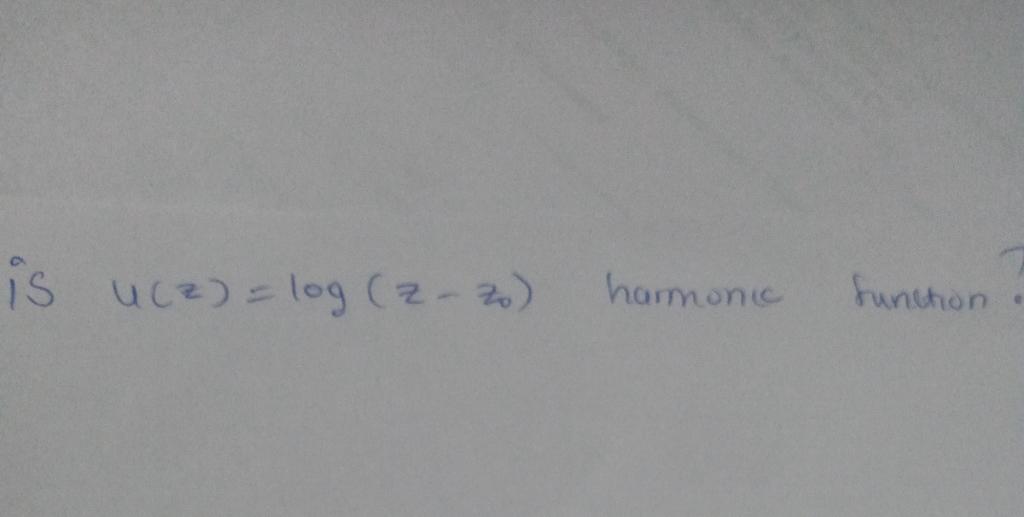 is u(z) = log (z - z₀) harmonic function ?